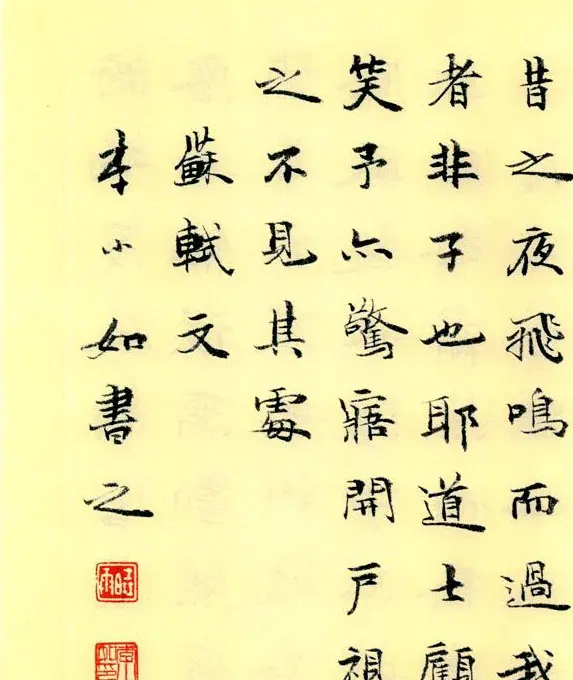 昔之夜飛鳴而過我
者非子也耶道士顧
笑予亦驚寤開戶視
之不見其處
蘇軾文
李小如書之